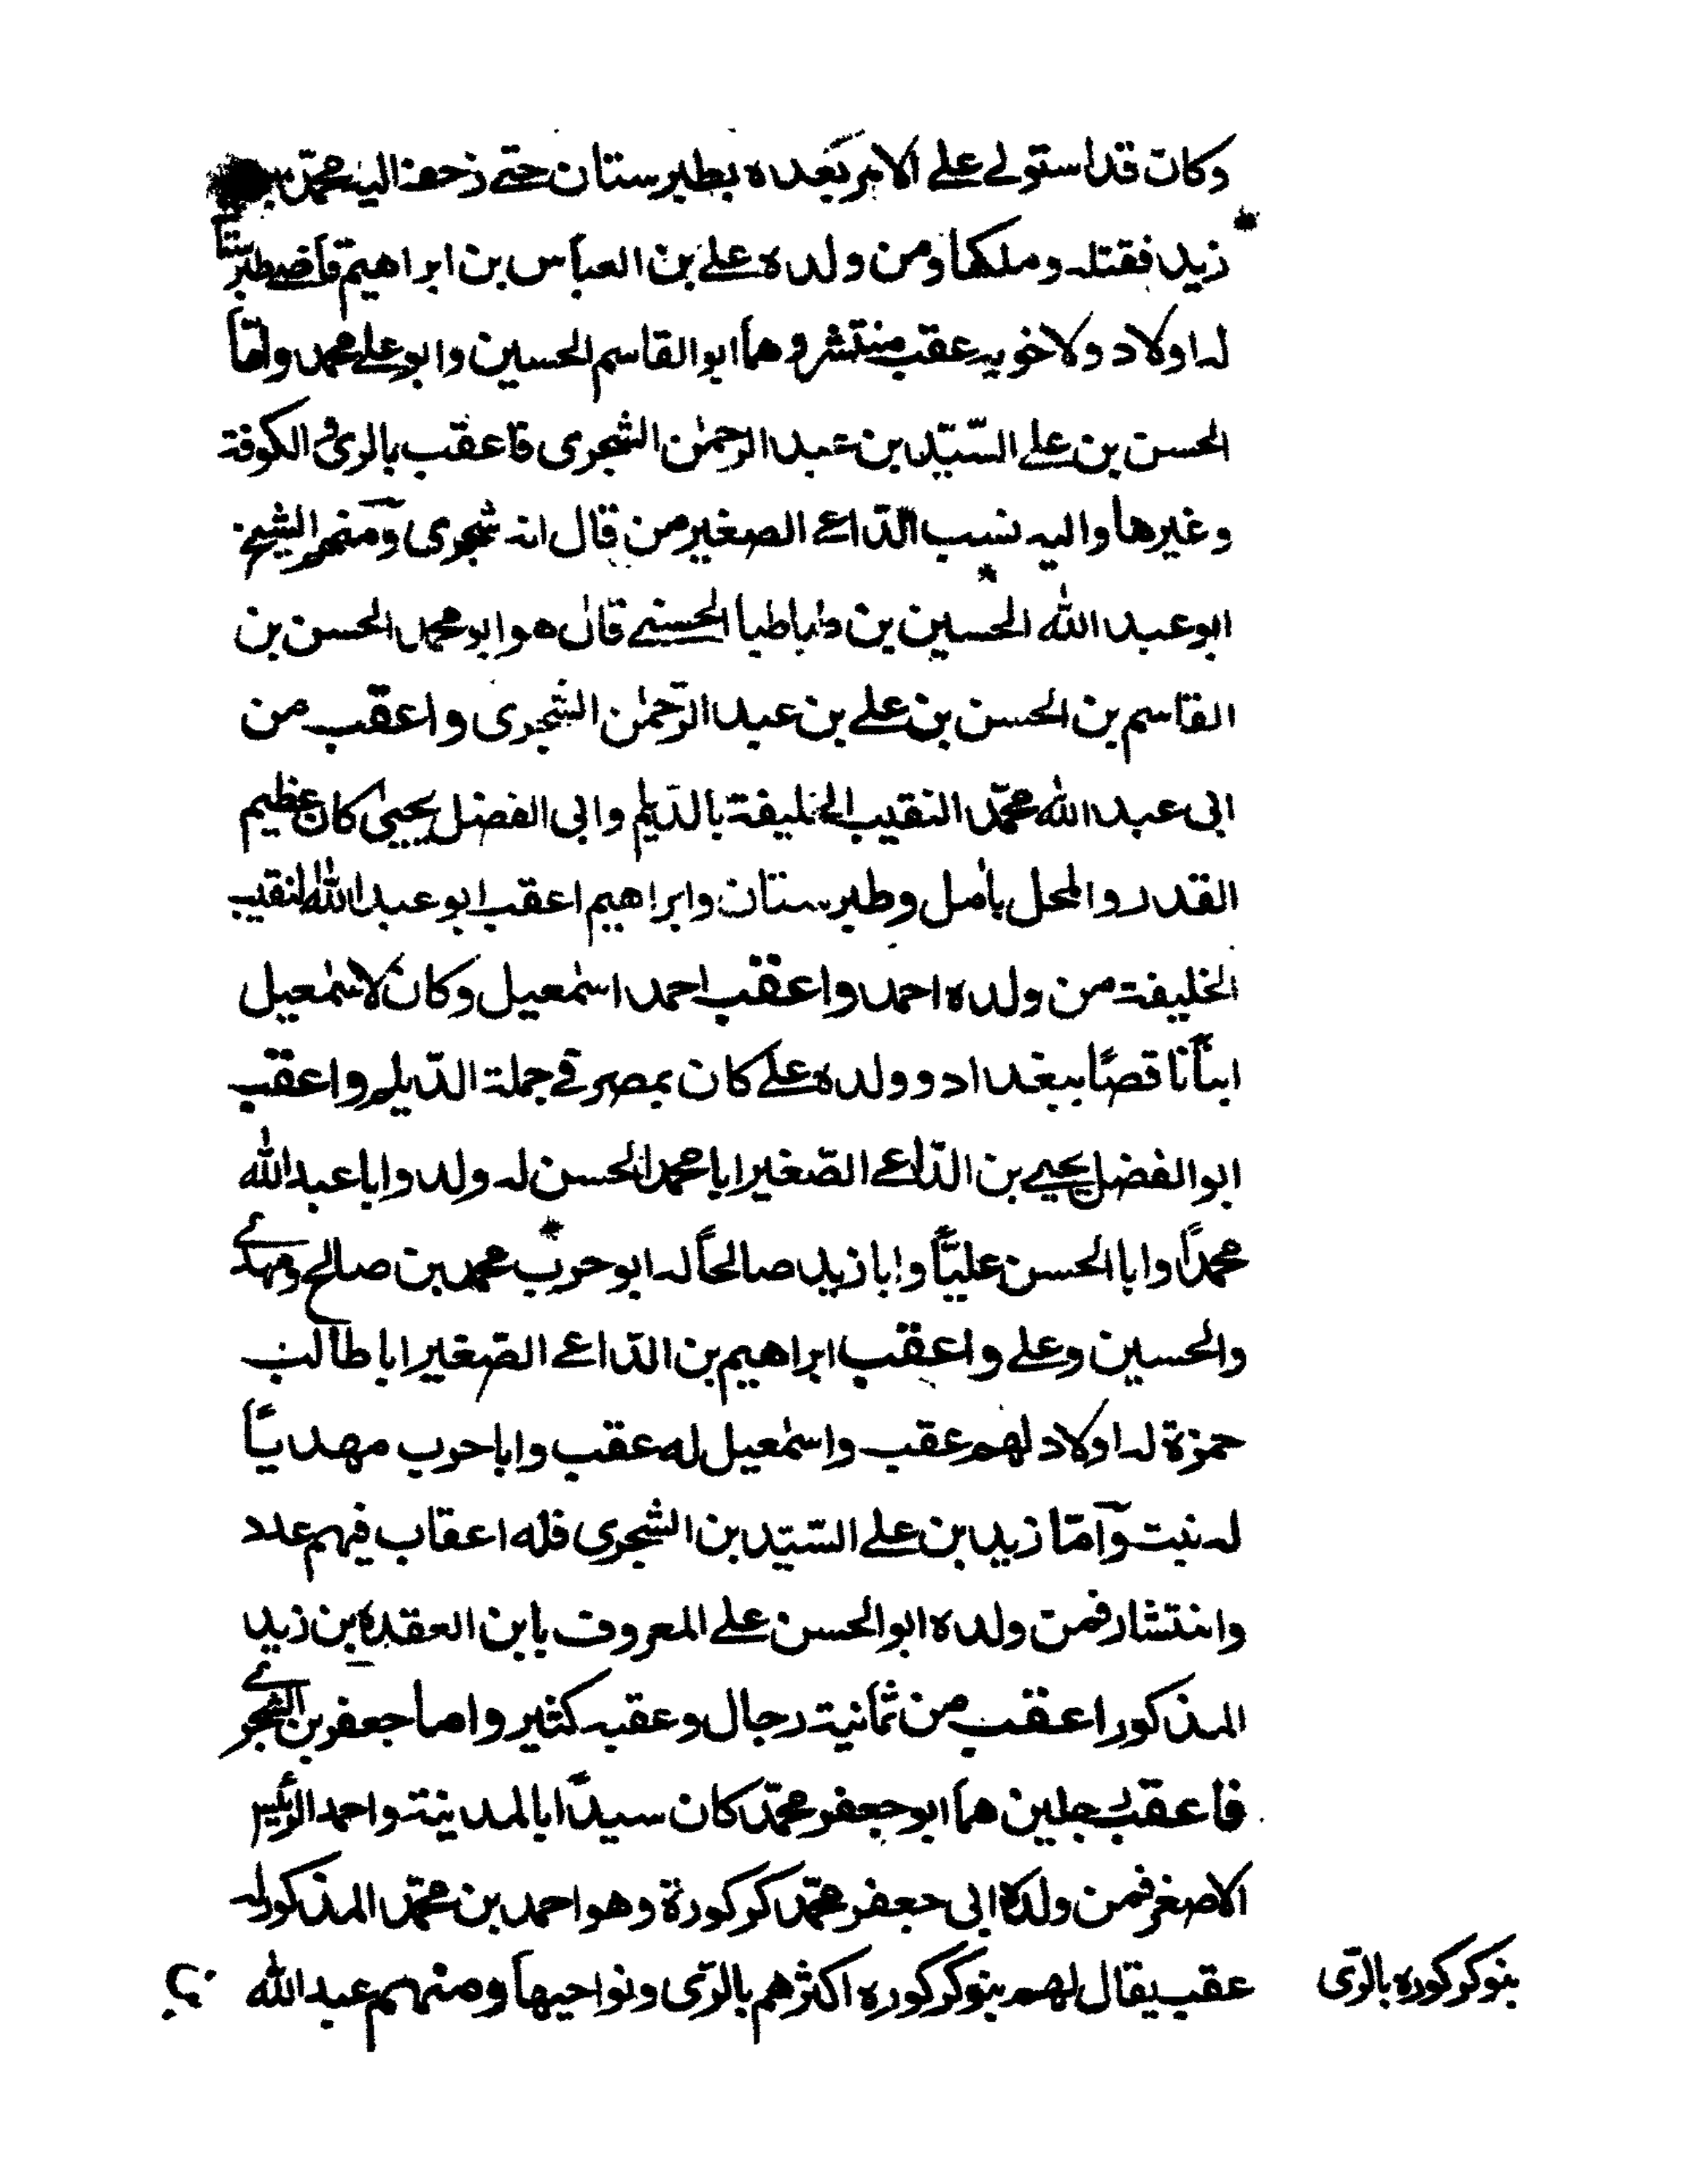 وكان قد استولى على الامر بعده بطبرستان حتى زحف اليه محمد بن
زيد فقتله وملكها ومن ولده على بن العباس بن ابراهيم قاضى طبرستا
له اولاد ولاخويه عقب منتشر وهما ابو القاسم الحسين وابو على محمد واما
الحسن بن على السيّد بن عبد الرحمٰن الشجرى فاعقب بالرى والكوفة
وغيرها واليه نسب الدّاعى الصغير من قال انه شجرى ومنهم الشيخ
ابو عبد الله الحسين بن طباطبا الحسنى قال هو ابو محمد الحسن بن
القاسم بن الحسن بن على بن عبد الرّحمٰن الشجرى واعقب من
ابى عبد الله محمّد النقيب الخليفة بالدّيلم وابى الفضل يحيىٰ كان عظيم
القدر والمحل بامل وطبرستان وابراهيم اعقب ابو عبد الله النقيب
الخليفة من ولده احمد واعقب احمد اسمٰعيل وكان لاسمٰعيل
ابنًا ناقصًا ببغداد وولده على كان بمصر فى جملة الدّيلم واعقب
ابو الفضل يحيى بن الدّاعى الصّغير ابا محمد الحسن له ولد وابا عبد الله
محمدًا وابا الحسن عليّاً وابا زيد صالحاً له ابو حرب محمد بن صالح ومهدى
والحسين وعلى واعقب ابراهيم بن الدّاعى الصّغير ابا طالب
حمزة له اولاد لهم عقب واسمٰعيل له عقب وابا حرب مهديّاً
له نبت وامّا زيد بن على السّيّد بن الشجرى فله اعقاب فيهم عدد
وانتشار فمن ولده ابو الحسن على المعروف بابن العقدة بن زيد
المذكور اعقب من ثمانية رجال وعقبه كثير واما جعفر بن الشجرى
فاعقب رجلين هما ابو جعفر محمّد كان سيدًا بالمدينة واحمد الرئيس
الاصغر فمن ولد ابى جعفر محمّد كركورة وهو احمد بن محمّد المذكور له
عقب يقال لهم بنو كركوره اكثرهم بالرّى ونواحيها ومنهم عبد الله
بنو كركوره بالرّى